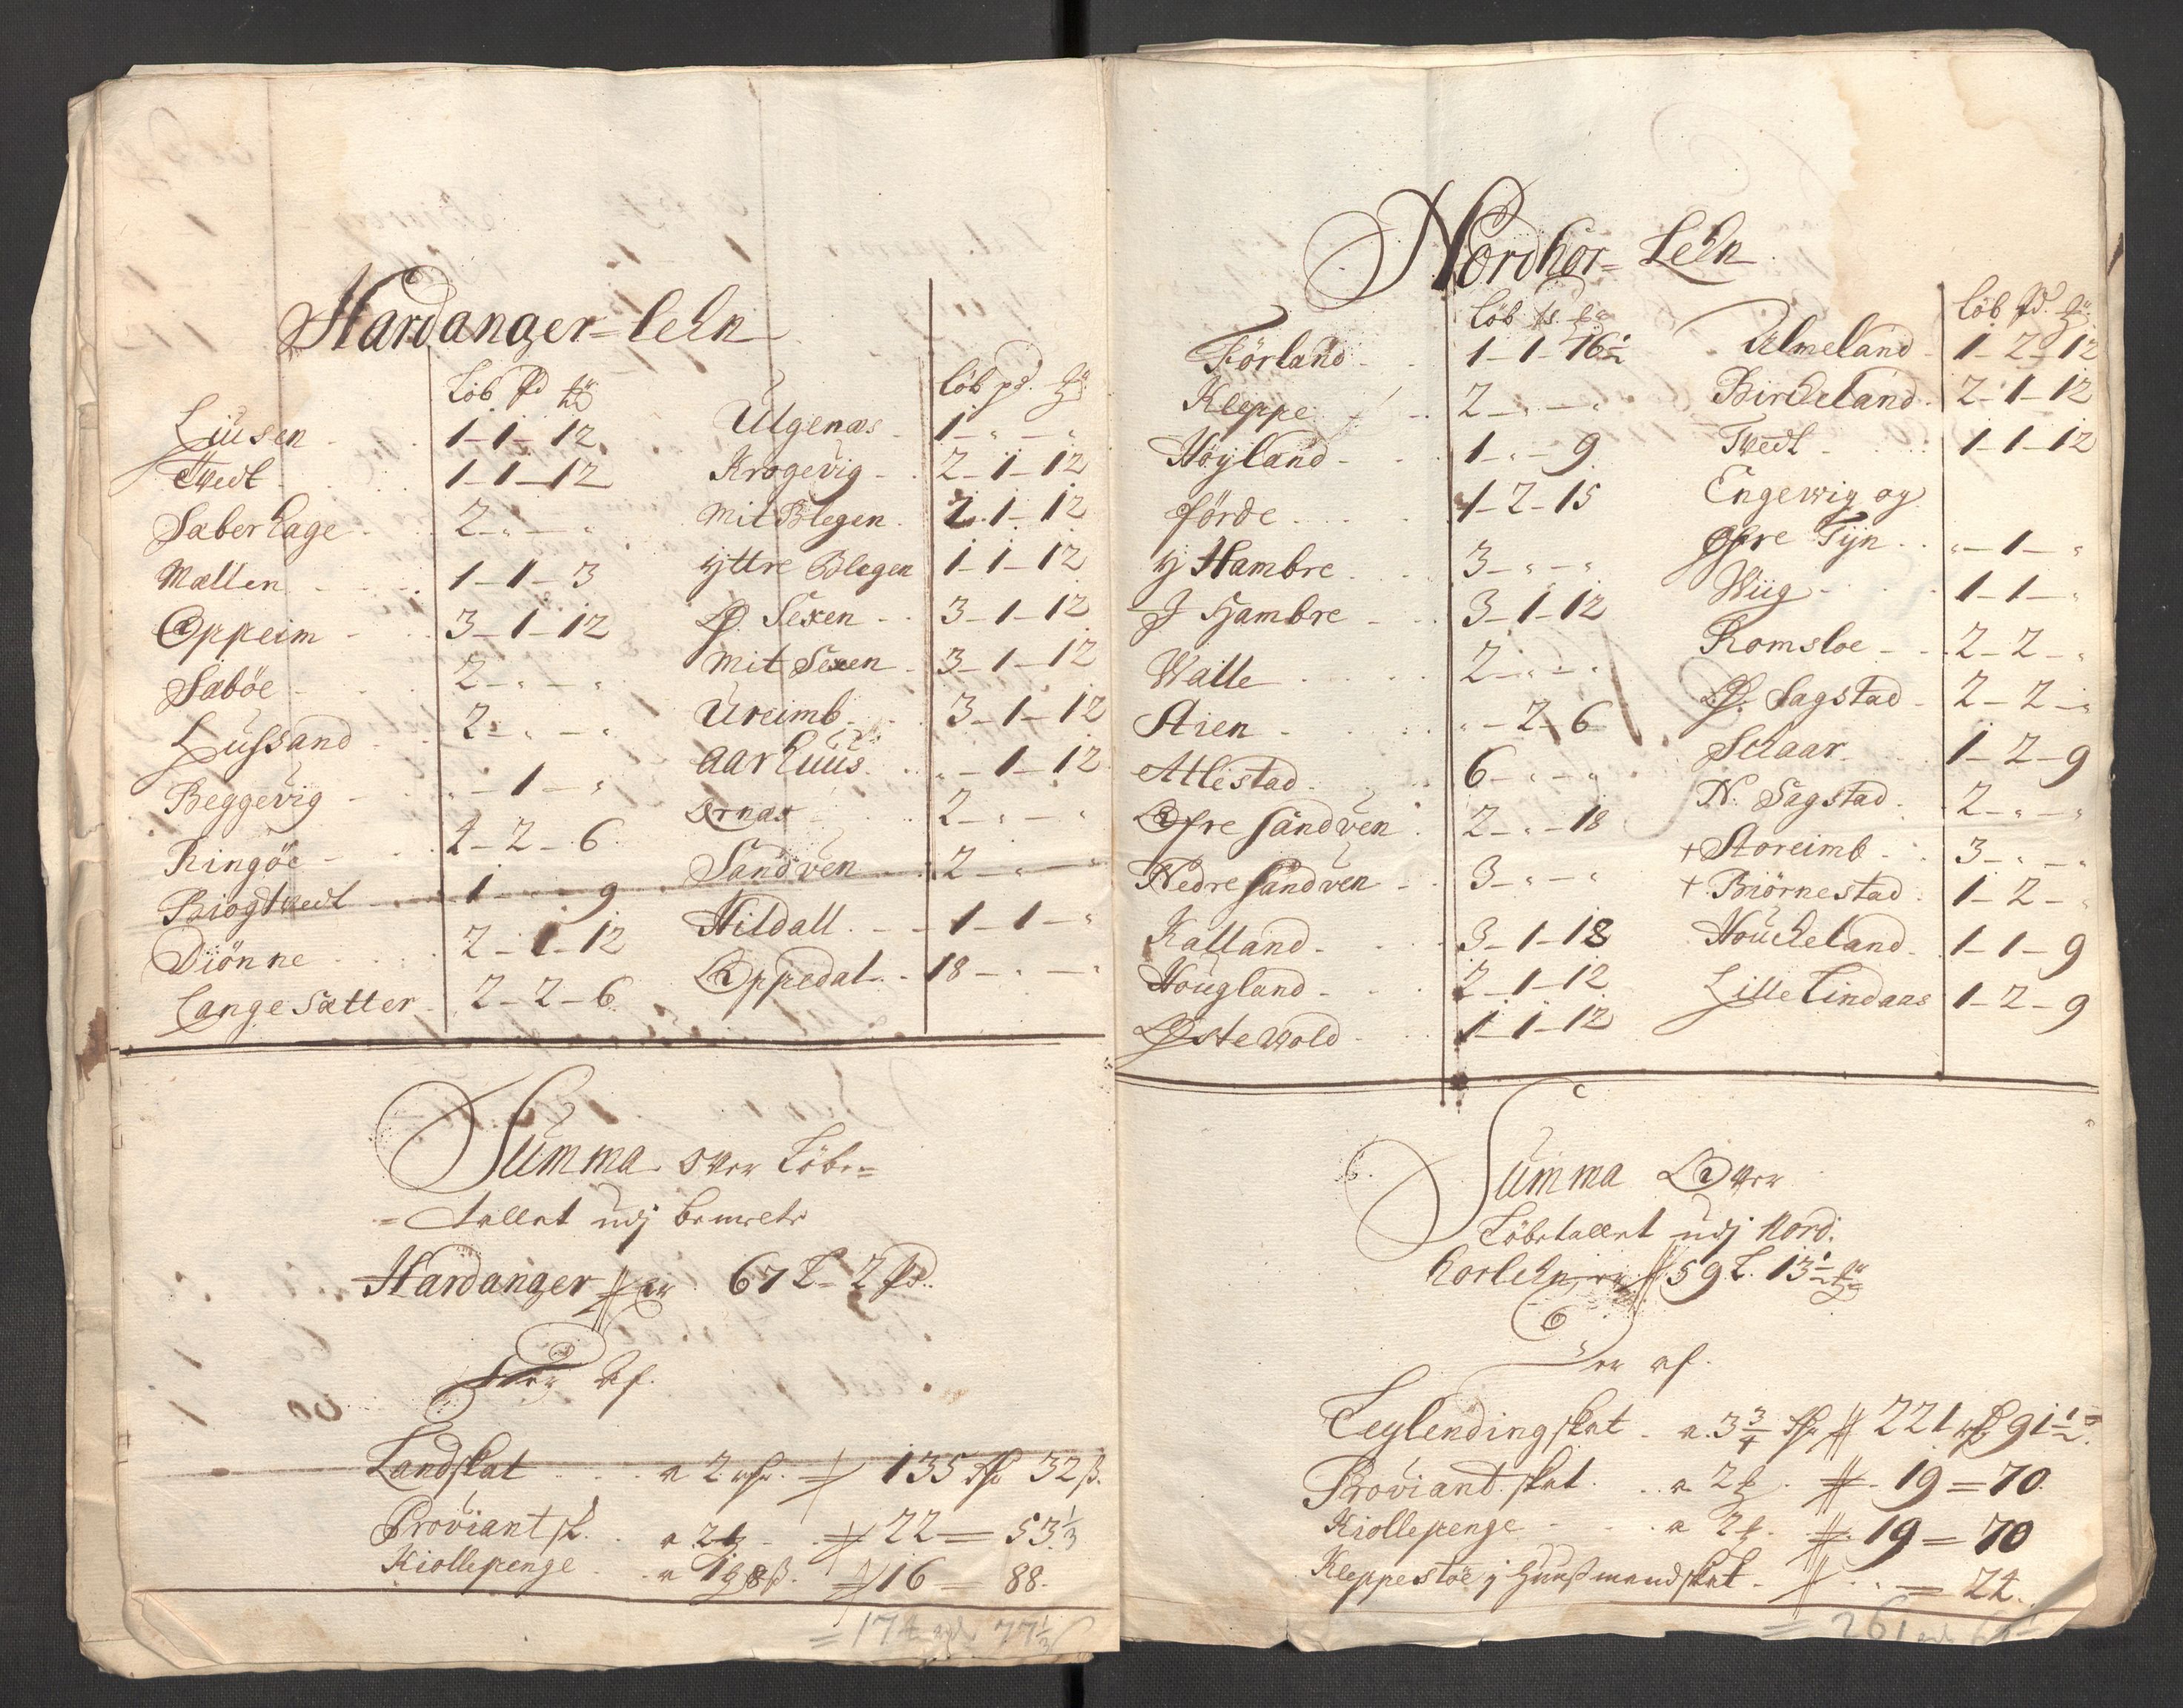 Hardanger-lehn
Löb pd
Liusen 1-1-12
Tvedt 1-1-12
Saberhage 2-„-„
Mællen 1-1-3
Oppeim 3-1-12
Sæböe 2-„-„
Lussand 2-„-„
Beggevig „-1-„
Ringöe 4-2-6
Biogtvedt 1-„-9
Diönne 2-1-12
Lange Sætter 2-2-6
löb pd
Ulgenæs 1-„-„
Krogevig 2-1-12
Mit Blegen 2-1-12
Yttre Blegen 1-1-12
Ö. Sexen 3-1-12
Mit Sexen 3-1-12
Ureimb 3-1-12
Aarhuus „-1-12
Ornæs 2-„-„
Sandven 2-„-„
Hildall 1-1-„
Oppedal 18-„-„
Summa over Löbe-
-tallet udj bemelte
Hardanger er 67 L-2 pd.
er af.
Landskat a 2 135 32 ß.
Proviant sk. a 2 22=53 1/3
Kiollepenge a 1 8 ß. 16=88.
=174 77 1/3
Nordhor-Lehn
Löb pd
Förland 1-1-16 1/2
Kleppe 2-„-„
Höyland 1-„-9
förde 1-2-15
Y Hambre 3-„-„
J Hambre 3-1-12
Walle 2-„-„
Stien „-2-6
Atlestad 6-„-„
Öfre Sandven 2-„-18
Nedre Sandven 3-„-„
Kalland 3-1-18
Hougland 2-1-12
Östewold 1-1-12
löb pd.
Ulmeland 1-2-12
Bircheland 2-1-12
Tvedt 1-1-12
Engewig og
Öfre Tyn „-1-„
Wiig 1-1-„
Romsloe 2-2-„
Ö. Sagstad 2-2-„
Schaar 1-2-9
N. Sagstad 2-„-„
+Storeimb 3-„-„
+Biörnestad 1-2-„
Houcheland 1-1-9
Lille Lindaas 1-2-9
Summa Over
Löbetallet udj Nord:
horlehn er 59 L. 13 1/2
er af.
Leylendingskat a 3 3/4 221 91 1/2
Proviant skat. a 2 19=70
Kiollepenge a 2 19=70
Kleppestöe j Huusmandskat = 24.
=261